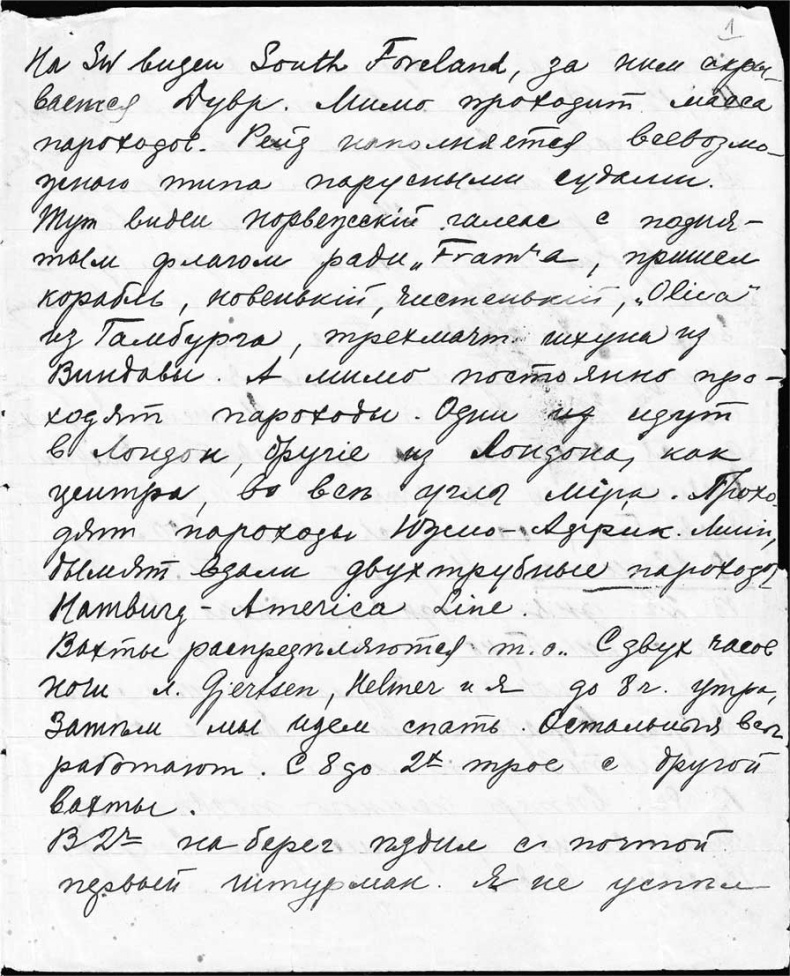 1
На SW виден South Foreland, за ним скры-
вается Дувр. Мимо проходит масса
пароходов. Рейд наполняется всевозмо-
жного типа парусными судами.
Тут виден норвежскій галеас с подня-
тым флагом ради „Fram“а, пришел
корабль, новенькій, чистенькій, „Oliva“
из Гамбурга, трехмачт. шхуна из
Виндавы. А мимо постоянно про-
ходят пароходы. Одни идут
в Лондон, другіе из Лондона, как
центра, во всѣ углы міра. Прохо-
дят пароходы Южно-Африк. Линіи,
дымят вдали двухтрубные пароходы
Hamburg-America Line.
Вахты распредѣляются т.о.. С двух часов
ночи л. Gjertsen, Helmer и я до 8 ч. утра,
Затѣм мы идем спать. Остальныя всѣ
работают. С 8 до 2х трое с другой
вахты.
В 2ч на берег ѣздил с почтой
первый штурман. Я не успѣл